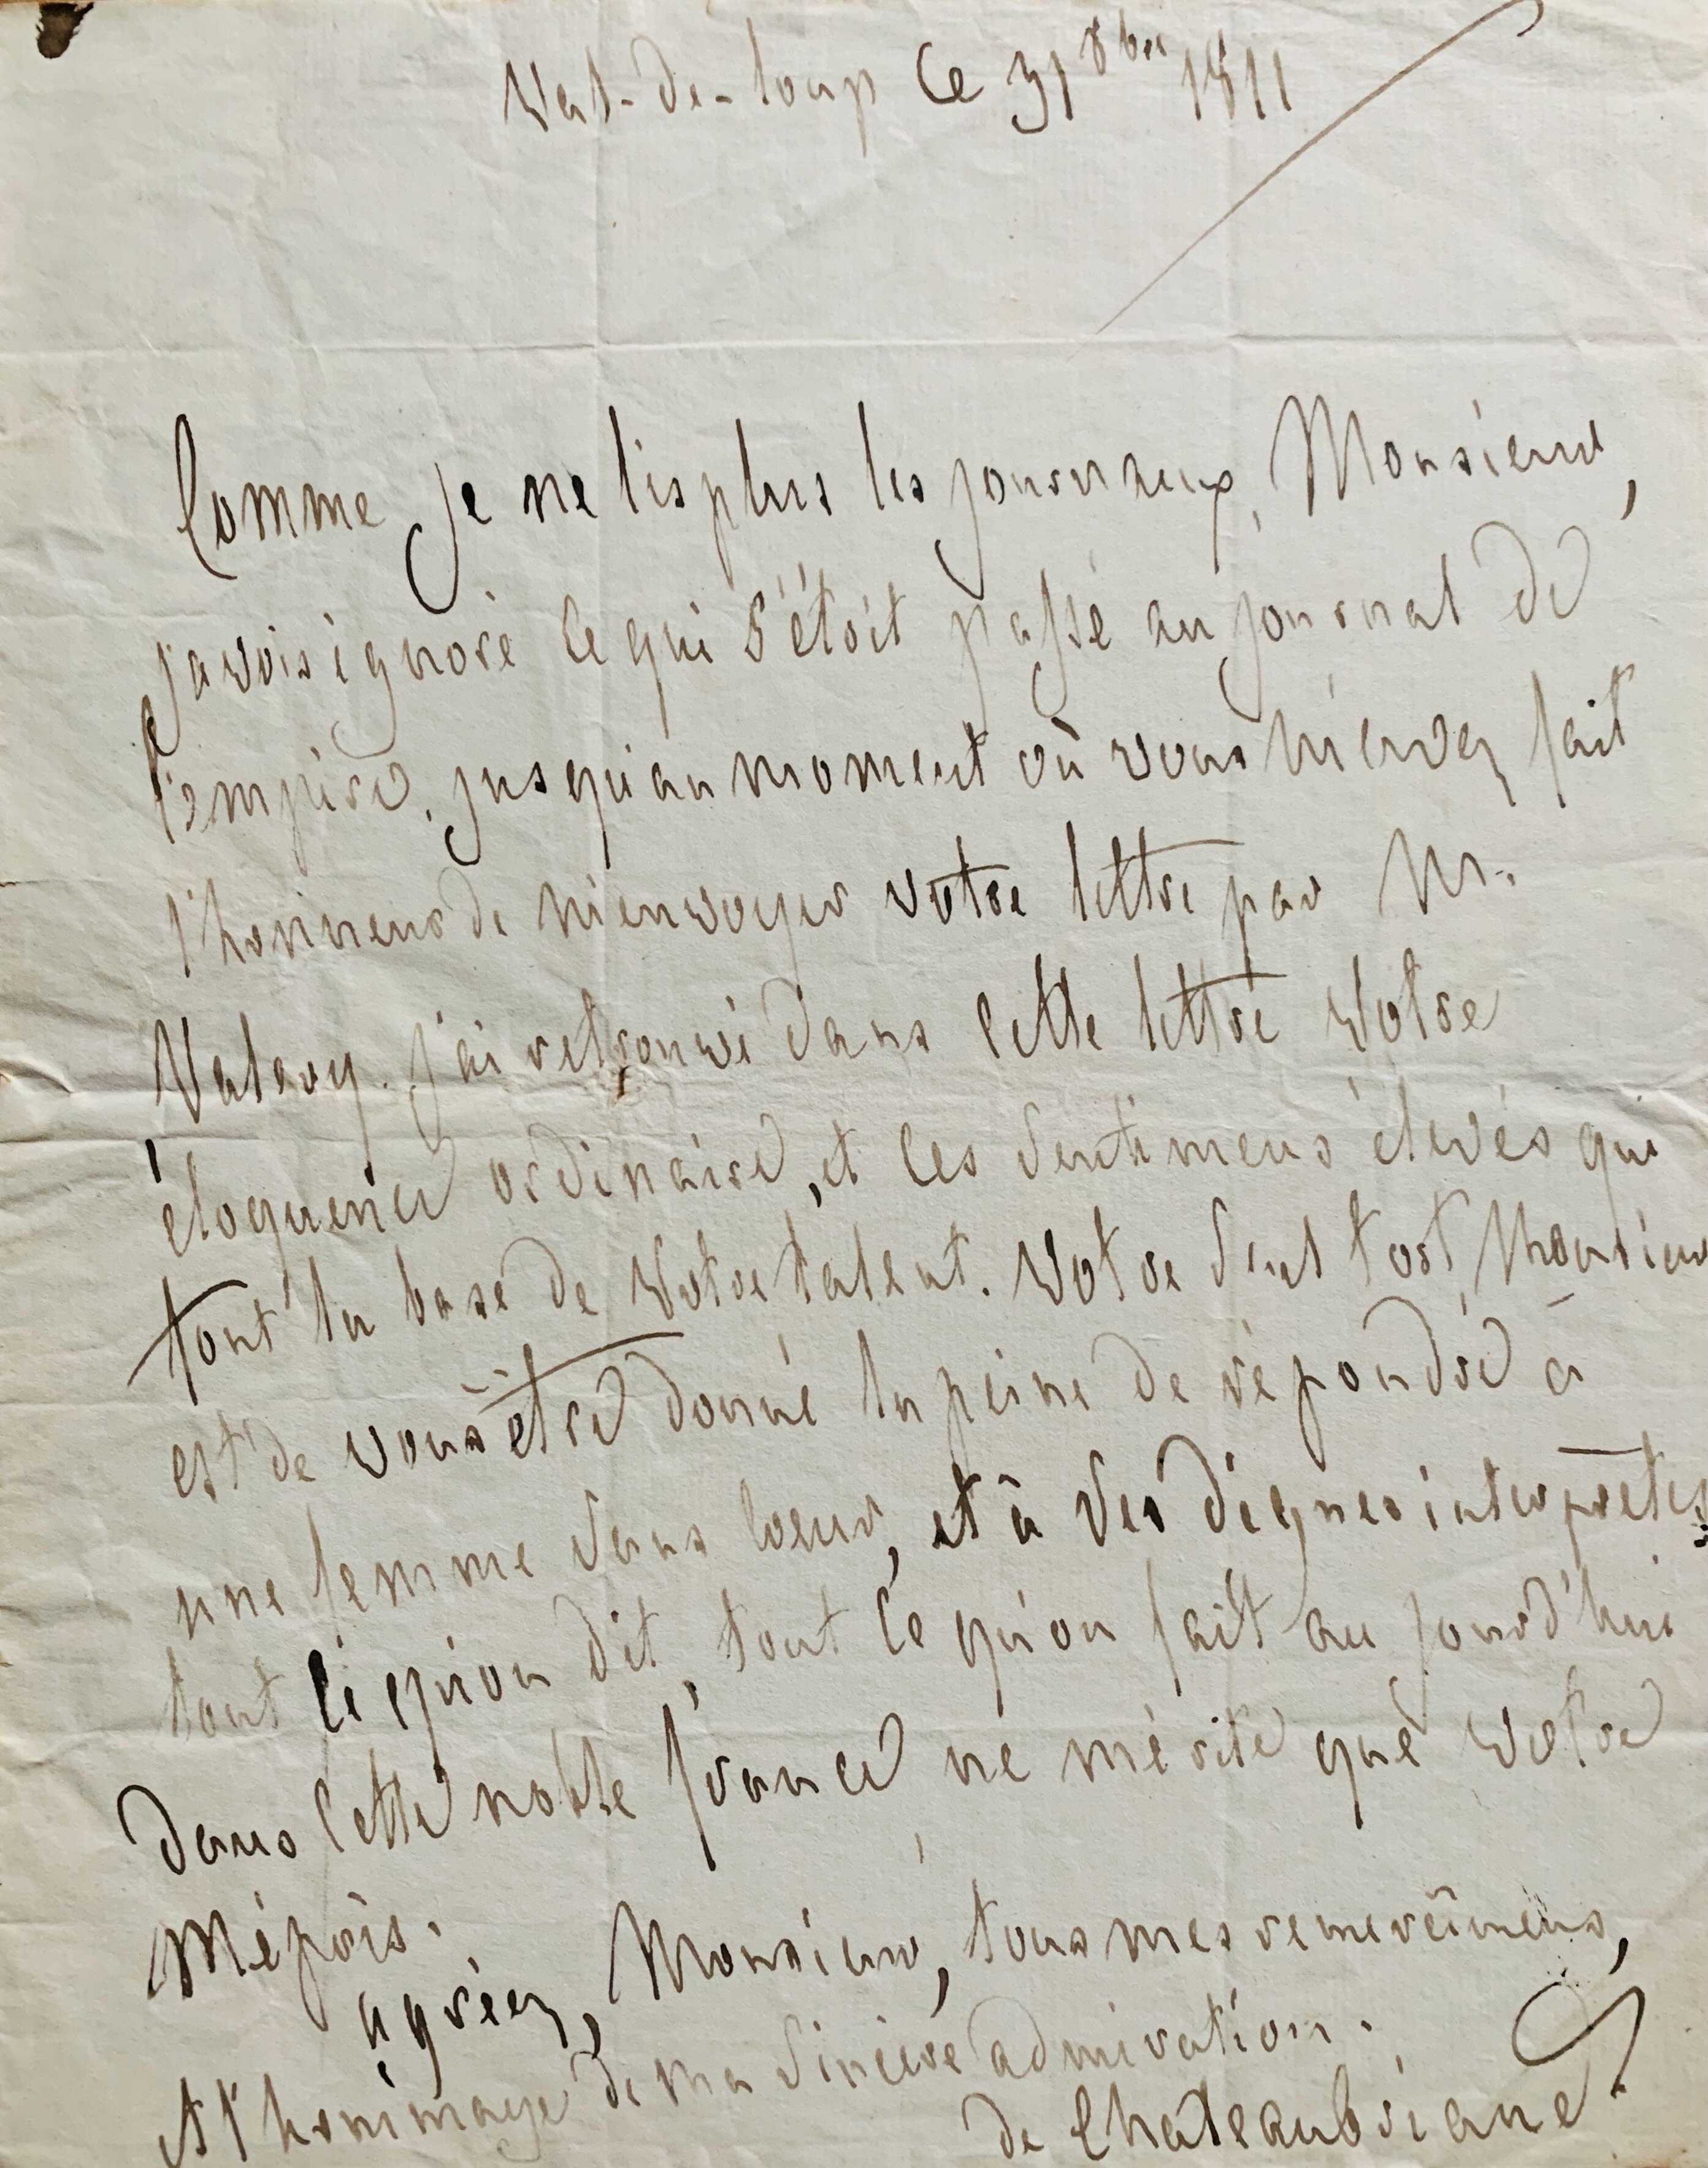 Val-de-loup ce 31 8bre 1811
Comme je ne lis plus les journaux, Monsieur,
j'avois ignoré ce qui s'étoit passé au journal de
l'empire, jusqu'au moment où vous m'avez fait
l'honneur de m'envoyer votre lettre par Mr.
Valery. J'ai retrouvé dans cette lettre votre
éloquence ordinaire, et ces sentimens élevés qui
font la base de votre talent. Votre seul tort, Monsieur
est de vous être donné la peine de répondre à
une femme sans coeur, et à ses dignes interprètes.
tout ce qu'on dit, tout ce qu'on fait aujourd'hui
dans cette noble france ne mérite que votre
Mépris.
agréez, Monsieur, tous mes remercîmens,
et l'hommage de ma sincère admiration.
de Chateaubriand